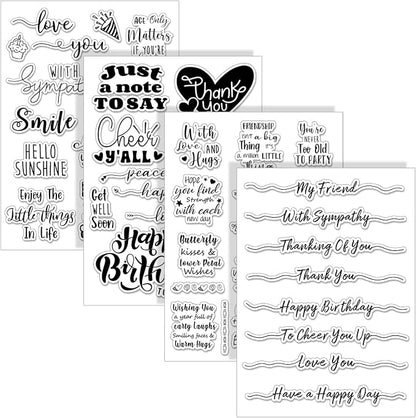 love
you
AGE Only
Matters
IF YOU'RE
WITH
Sympat
Smile
HELLO
SUNSHINE
Enjoy The
Little things
In Life
Just
a note
TO SAY
Thank
You
Cheer
Y'ALL
peace
Get
WELL
Soon
Happ
Birth
With
Love and
Hugs
FRIENDSHIP
isn't a big
Thing
it's
a million LITTLE
You're
NEVER
Too Old
TO PARTY
Hope
you find
Strength
with each
new day
Butterfly
kisses &
lower Petal
Wishes
Wishing You
a year full of
early laughs
Smiling faces &
Warm Hugs
My Friend
With Sympathy
Thanking Of You
Thank You
Happy Birthday
To Cheer You Up
Love You
Have a Happy Day